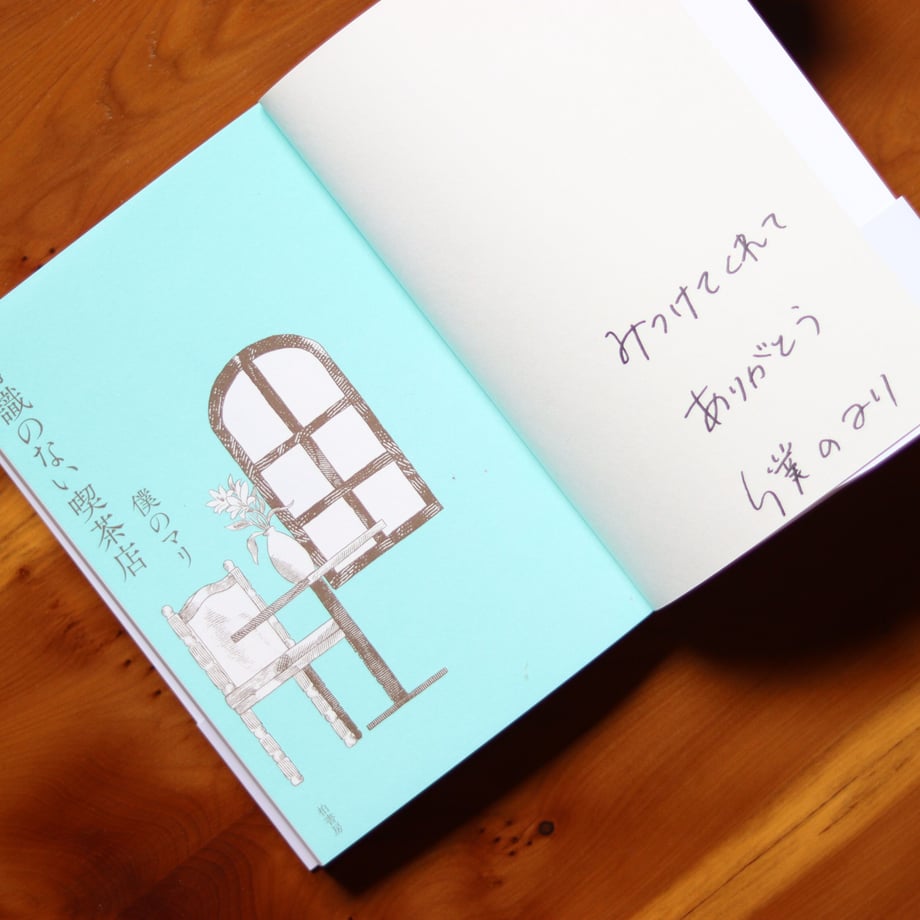 みつけてくれて
ありがとう
僕のマリ
識のない喫茶店
僕のマリ
柏書房